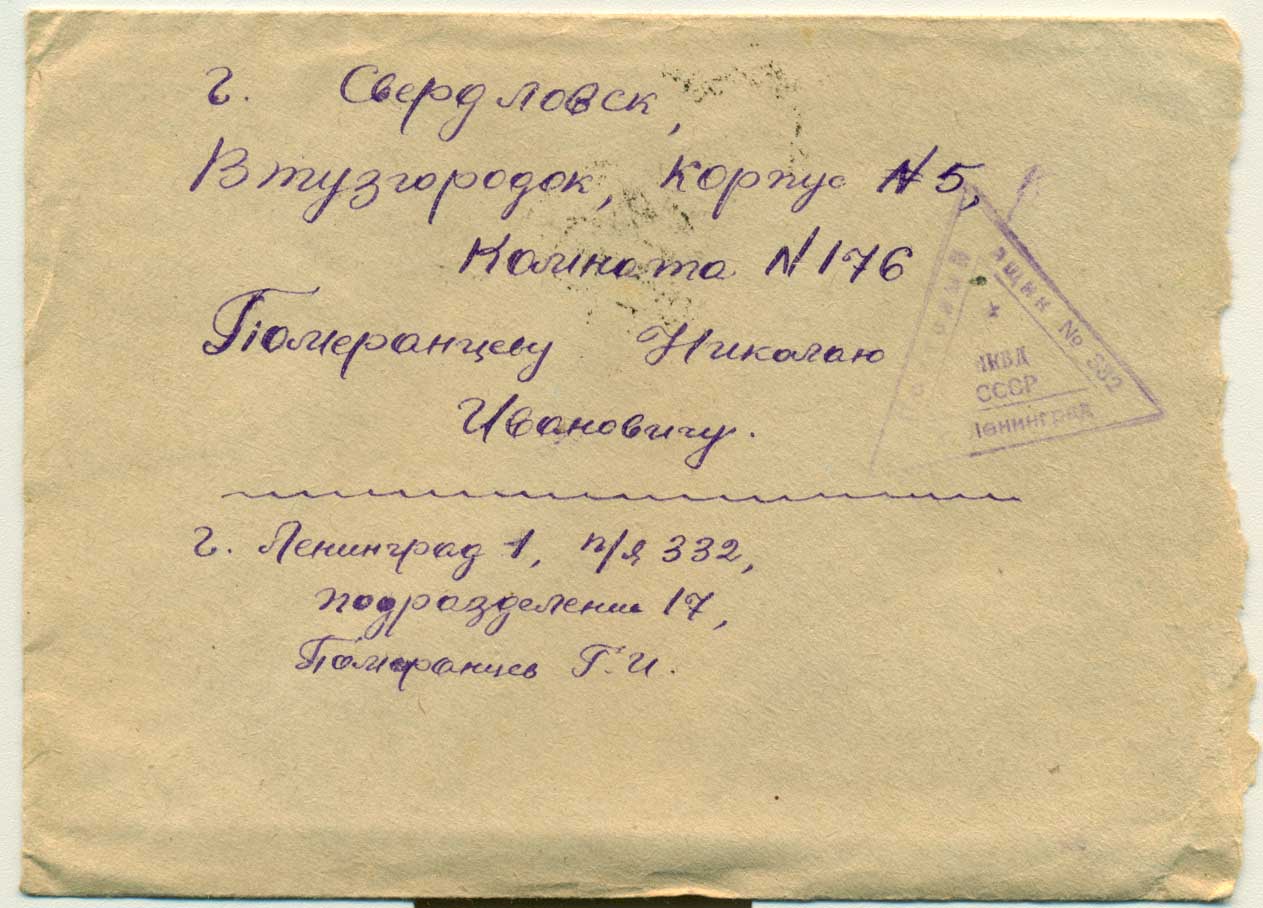 г. Свердловск,
Втузгородок, корпус N5,
Комната N176
Померанцеву Николаю
Ивановичу.
г. Ленинград 1, п/я 332,
подразделении 17,
Померанцев Г.И.
ящик № 332
НКВД
СССР
Ленинград